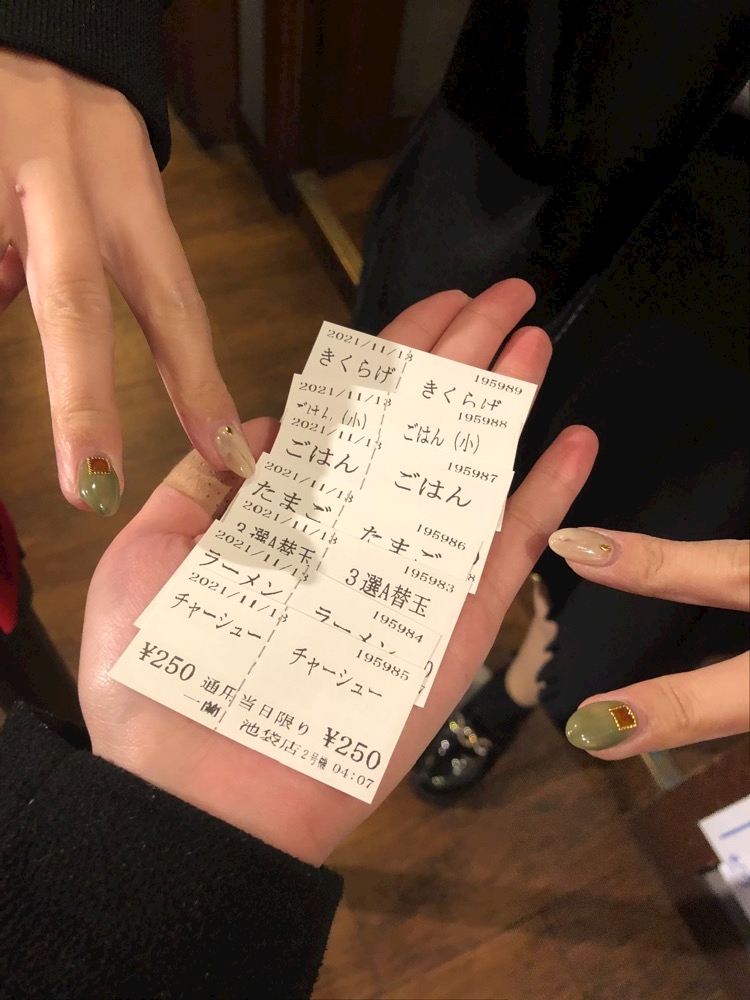 2021/11/13
きくらげ
195989
きくらげ
2021/11/13
ごはん (小)
195988
ごはん (小)
2021/11/13
ごはん
195987
ごはん
2021/11/13
たまご
195986
たまご
2021/11/13
3選A替玉
195983
3選A替玉
2021/11/13
ラーメン
195984
ラーメン
2021/11/13
チャーシュー
195985
チャーシュー
¥250 通用
一蘭
当日限り ¥250
池袋店 2号機 04:07